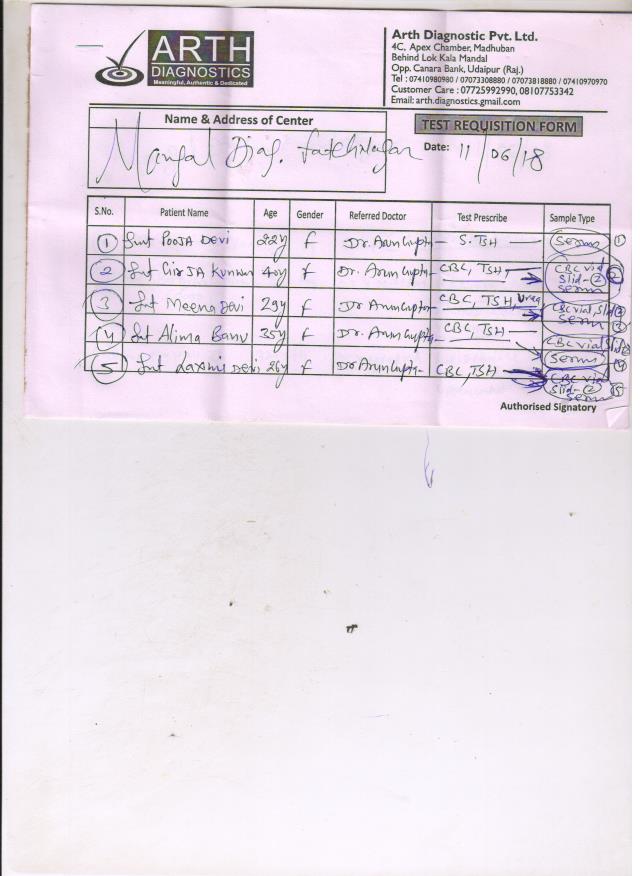 ARTH
DIAGNOSTICS
Meaningful, Authentic & Dedicated
Arth Diagnostic Pvt. Ltd.
4C, Apex Chamber, Madhuban
Behind Lok Kala Mandal
Opp. Canara Bank, Udaipur (Raj.)
Tel : 07410980980 / 07073308880 / 07073818880 / 07410970970
Customer Care : 07725992990, 08107753342
Email: arth.diagnostics.gmail.com
Name & Address of Center
TEST REQUISITION FORM
Mangal Diag. Fatehnagar
Date: 11/06/18
S.No. Patient Name Age Gender Referred Doctor Test Prescribe Sample Type
1 Smt POOJA Devi 22y F Dr. Arun Gupta S. TSH Serum 1
2 Smt GirJA Kunwar 40y F Dr. Arun Gupta CBC, TSH CBC vial Slid-(2) Serum 2
3 Smt Meena Devi 29y F Dr Arun Gupta CBC, TSH, Urea CBC vial, Slid (2) Serum 3
4 Smt Alima Banu 35y F Dr. Arun Gupta CBC, TSH CBC vial Slid (2) Serum 4
5 Smt Laxmi Devi 26y F Dr Arun Gupta CBC, TSH CBC vial Slid-(2) Serum 5
Authorised Signatory